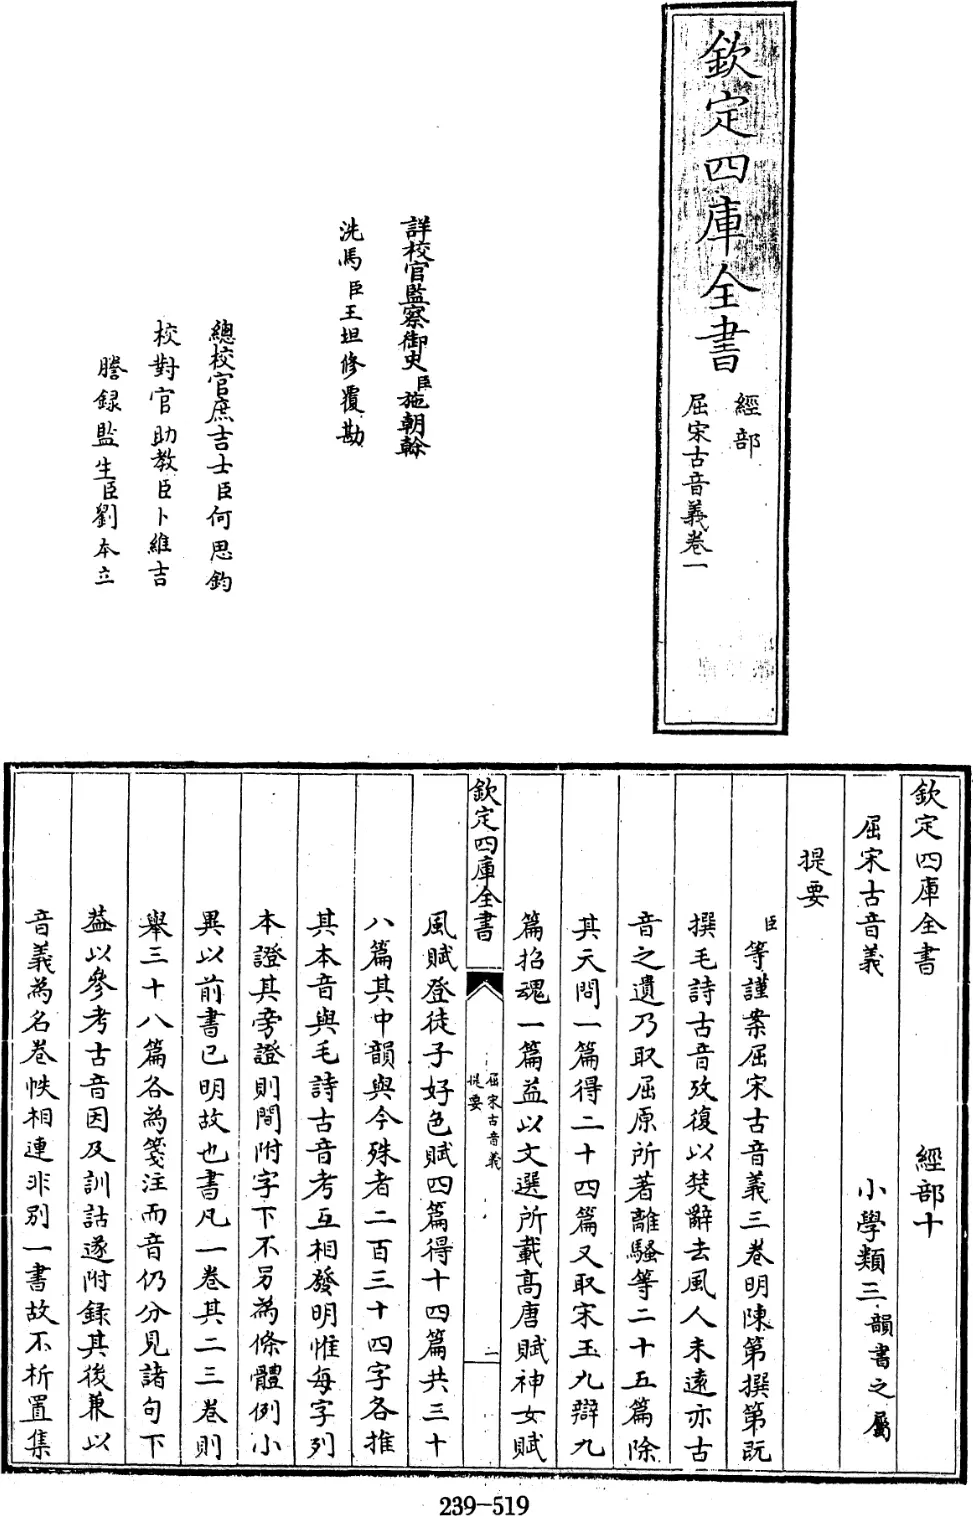 欽定四庫全書
經部
屈宋古音義卷一
詳校官監察御史臣施朝幹
洗馬臣王坦修覆勘
總校官庶吉士臣何思鈞
校對官助教臣卜維吉
謄録監生臣劉本立
欽定四庫全書 經部十
屈宋古音義 小學類三韻書之屬
提要
臣等謹案屈宋古音義三卷明陳第撰第既
撰毛詩古音攷復以楚辭去風人未遠亦古
音之遺乃取屈原所著離騷等二十五篇除
其天問一篇得二十四篇又取宋玉九辯九
篇招魂一篇益以文選所載高唐賦神女賦
欽定四庫全書
屈宋古音義
提要
一
風賦登徒子好色賦四篇得十四篇共三十
八篇其中韻與今殊者二百三十四字各推
其本音與毛詩古音考互相發明惟每字列
本證其旁證則間附字下不另為條體例小
異以前書已明故也書凡一卷其二三卷則
舉三十八篇各為箋注而音仍分見諸句下
葢以參考古音因及訓詁遂附録其後兼以
音義為名卷帙相連非別一書故不析置集
239-519